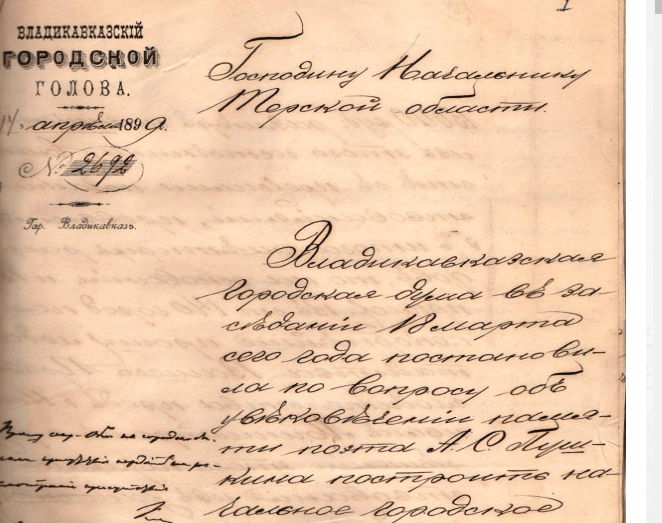 I
ВЛАДИКАВКАЗСКІЙ
ГОРОДСКОЙ
ГОЛОВА.
14 апрѣля 1899 г.
№ 2692
Гор. Владикавказъ.
Господину Начальнику
Терской области.
Владикавказская
городская дума въ за-
сѣданіи 18 марта
сего года постанови-
ла по вопросу объ
увѣковѣченіи памя-
ти поэта А. С. Пуш-
кина построить на-
чальное городское